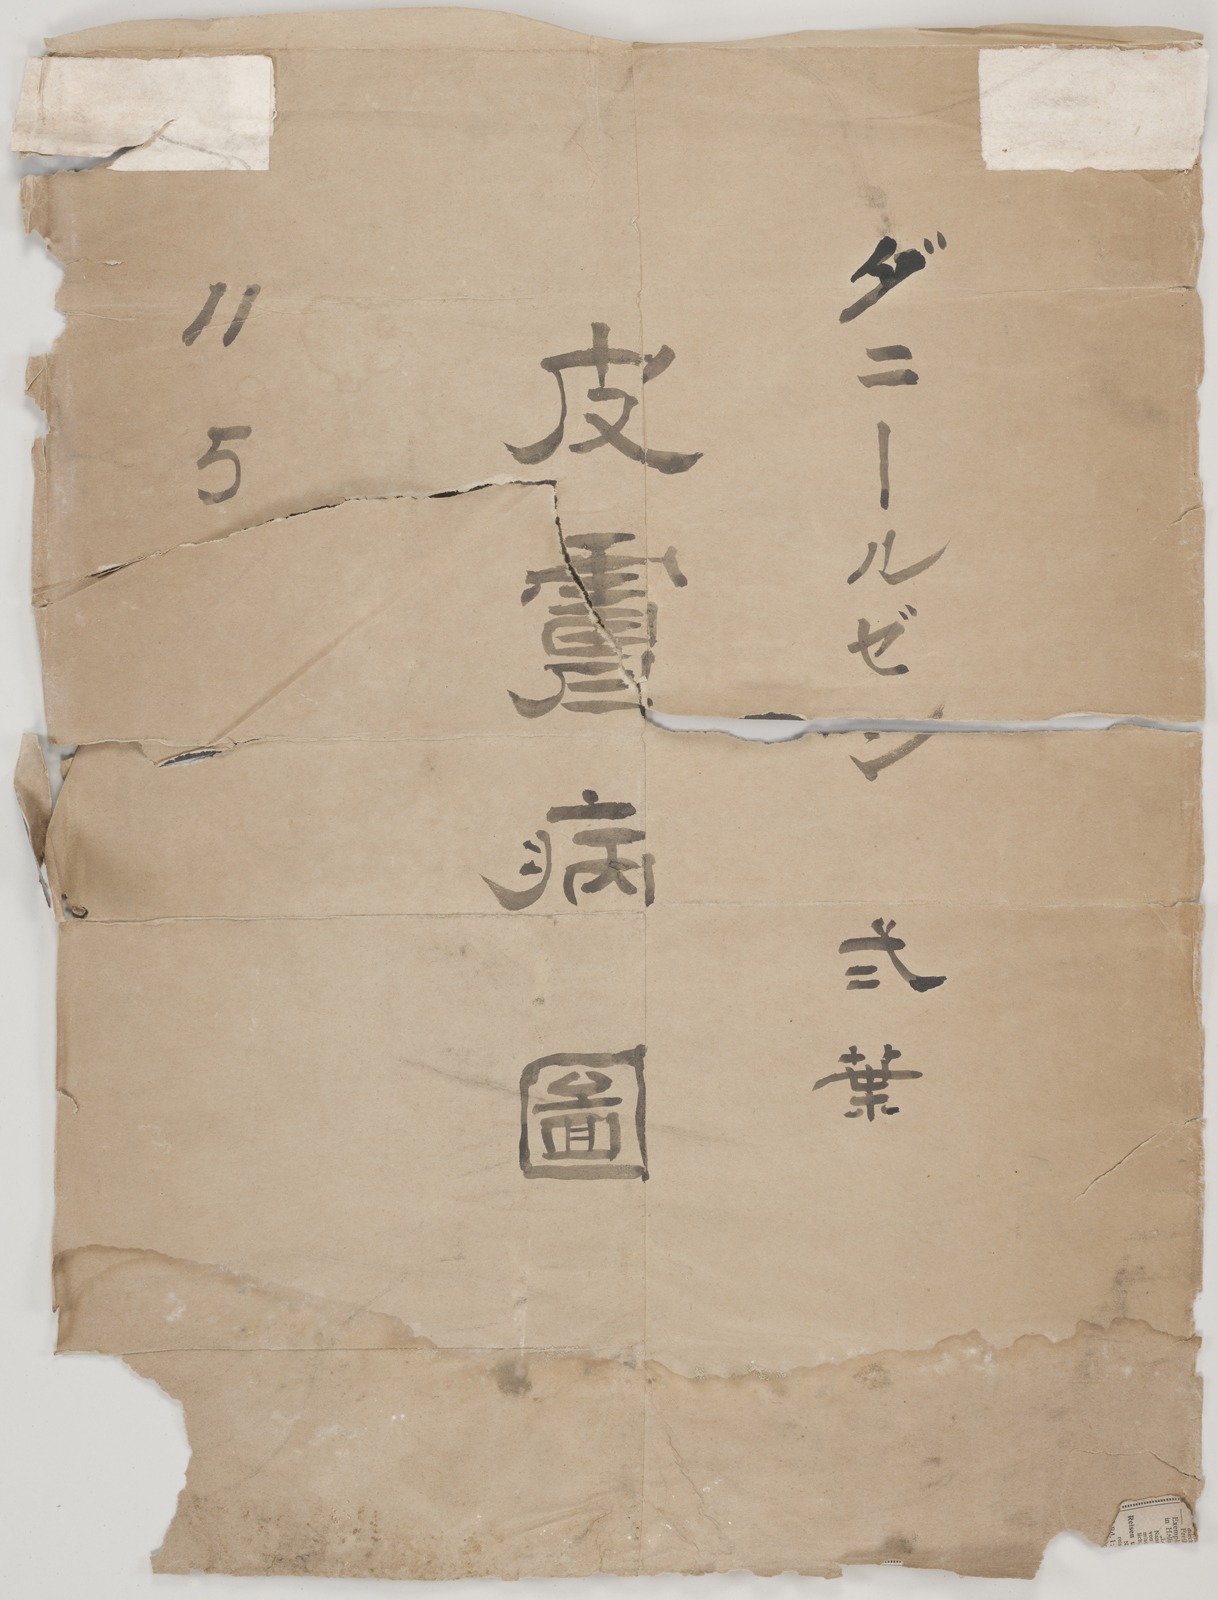 ダニールゼン 弍葉
皮膚病圖
11 5
Reisen